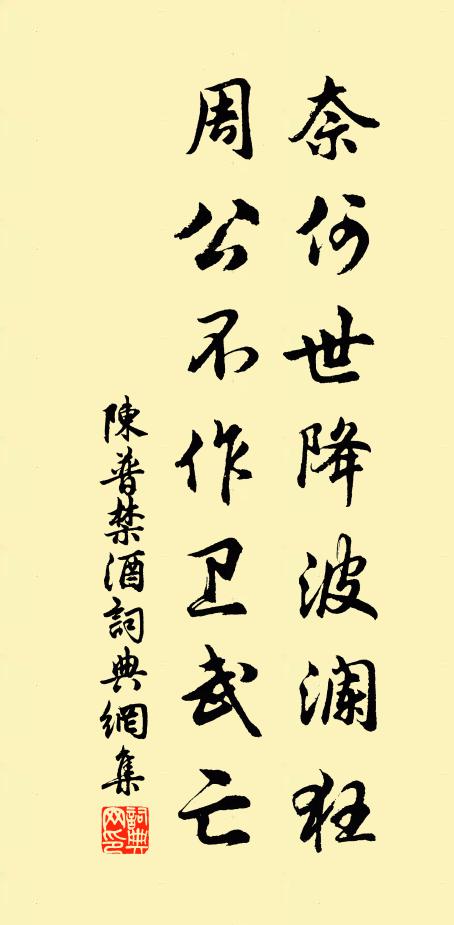 奈何世降波澜狂
周公不作卫武亡
陳普禁酒詞典網集
詞典網印